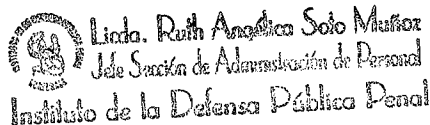 Licda. Ruth Angélica Soto Muñoz
Jefe Sección de Administración de Personal
Instituto de la Defensa Pública Penal